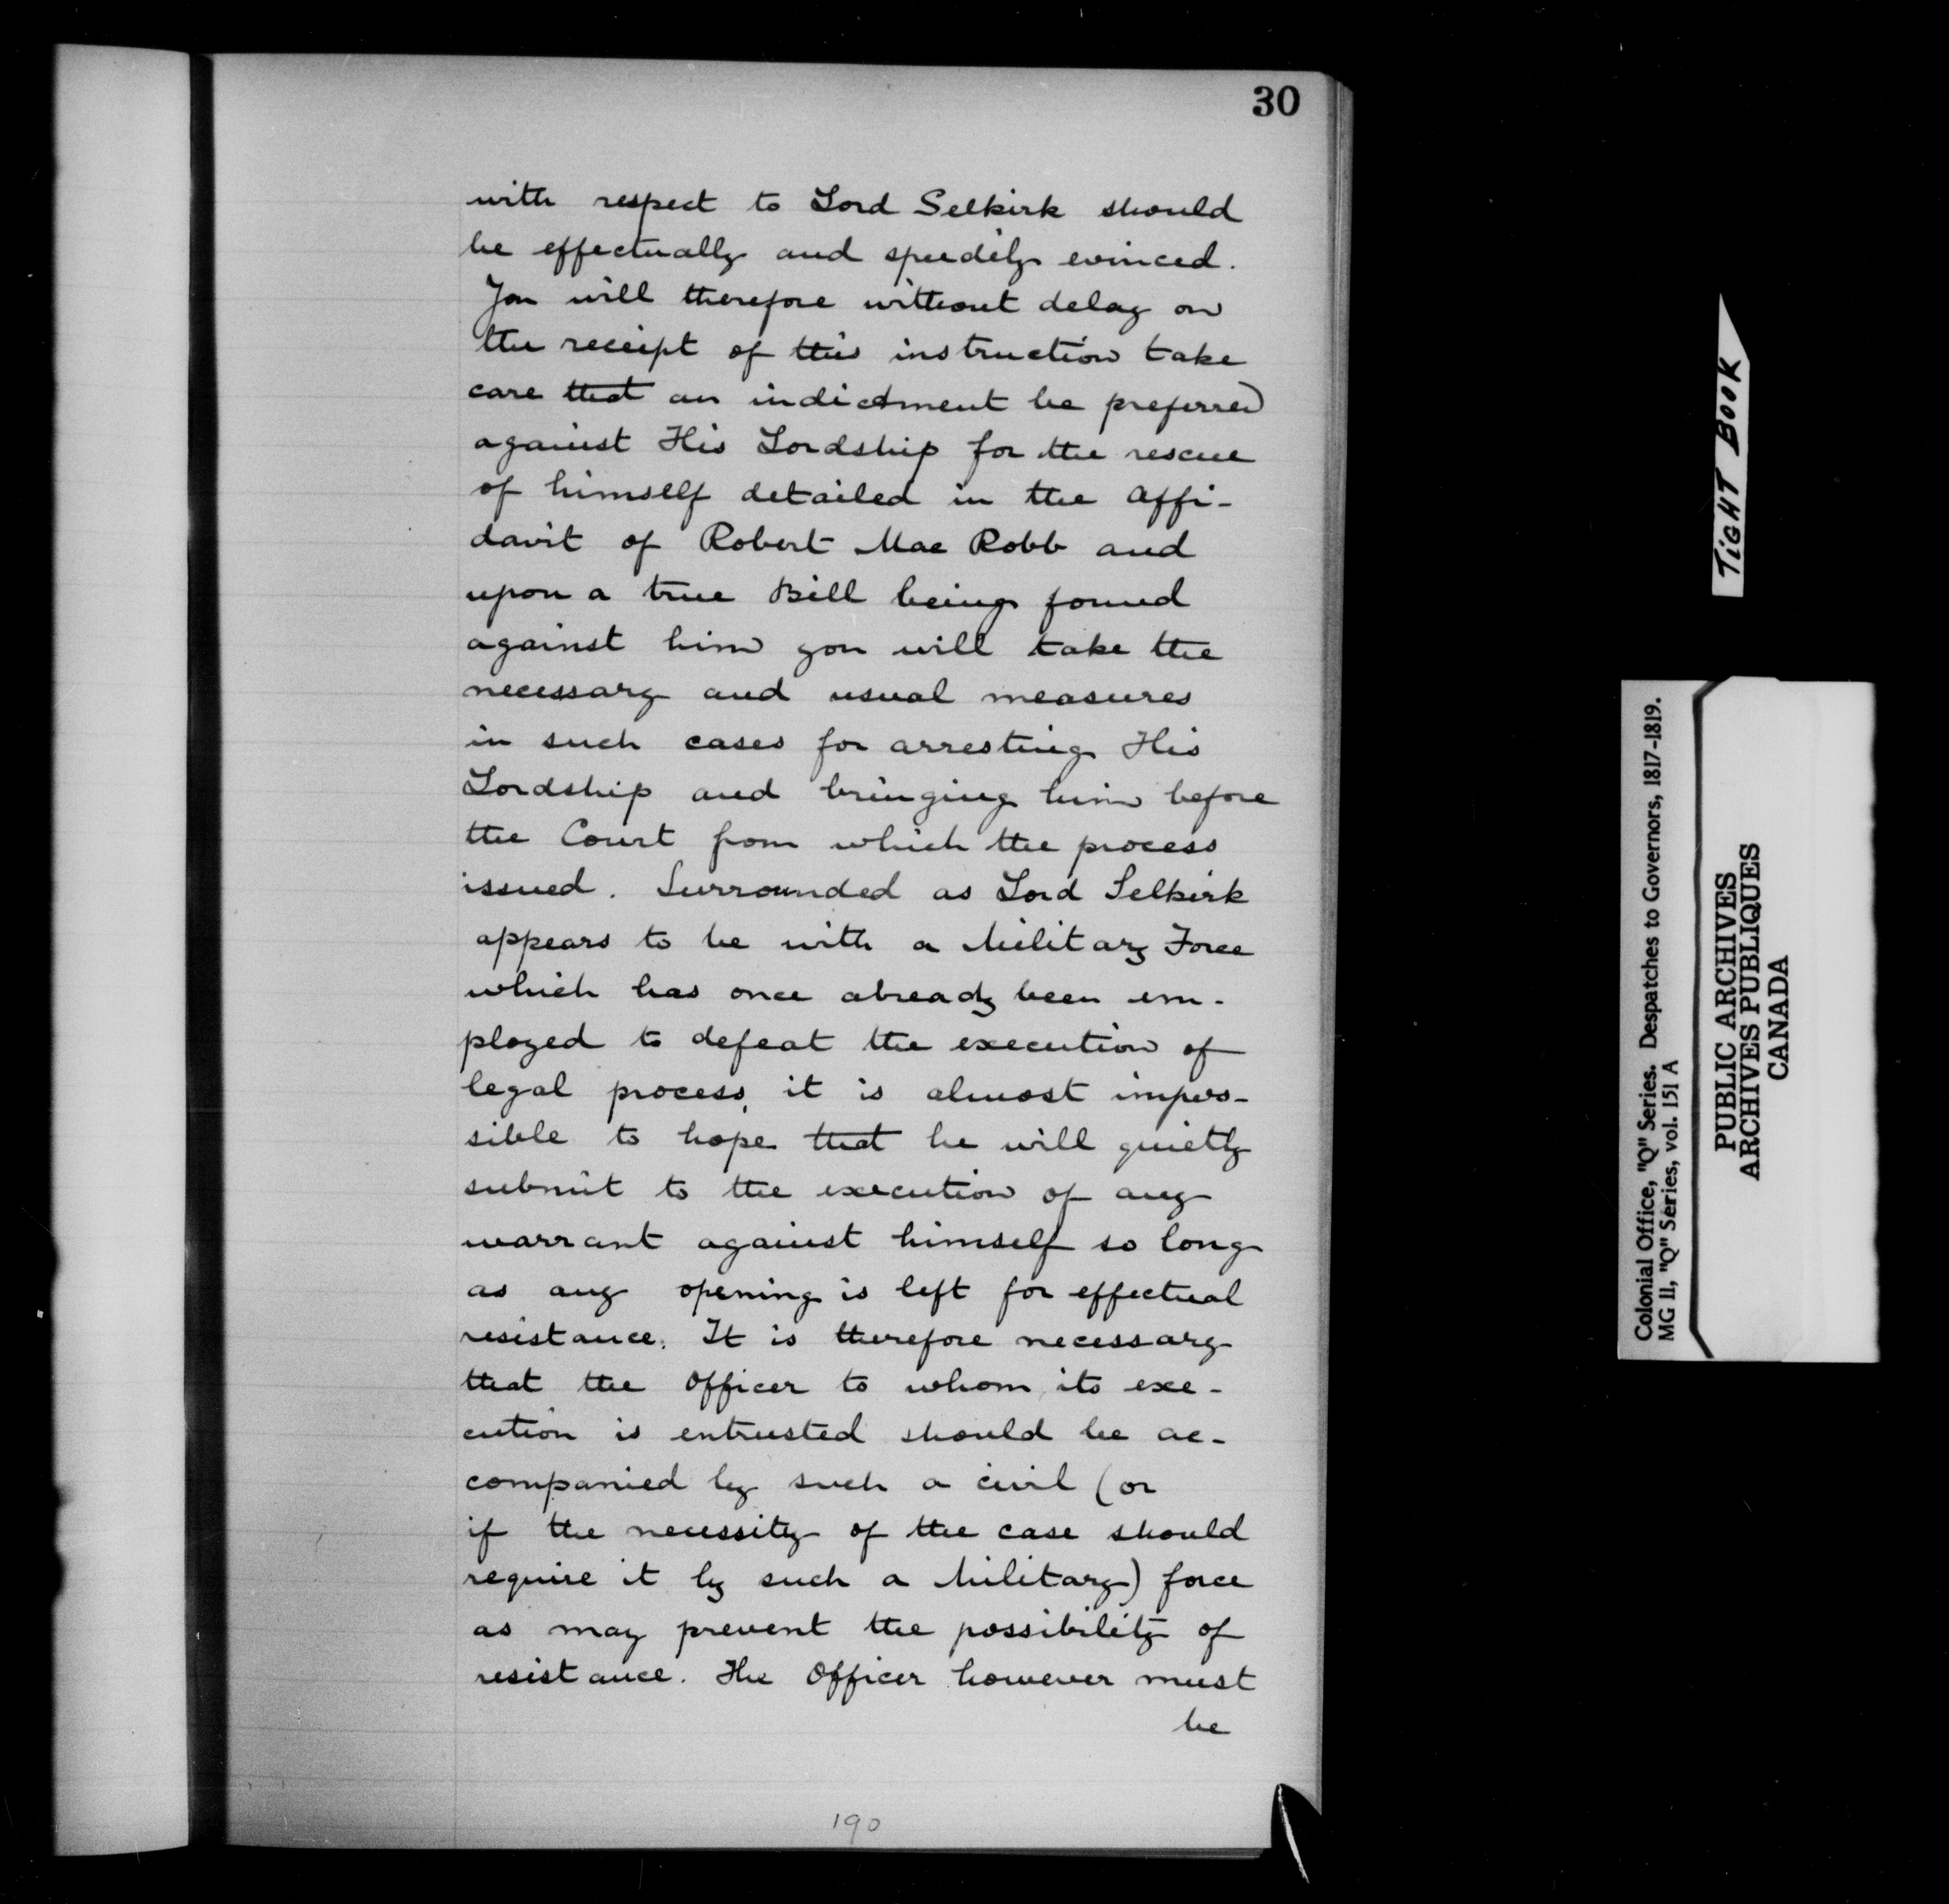 30
with respect to Lord Selkirk should
be effectually and speedily evinced.
You will therefore without delay on
the receipt of this instruction take
care that an indictment be preferred
against His Lordship for the rescue
of himself detailed in the Affi-
davit of Robert Mac Robb and
upon a true Bill being found
against him you will take the
necessary and usual measures
in such cases for arresting His
Lordship and bringing him before
the Court from which the process
issued. Surrounded as Lord Selkirk
appears to be with a Military Force
which has once already been em-
ployed to defeat the execution of
legal process, it is almost impos-
sible to hope that he will quietly
submit to the execution of any
warrant against himself so long
as any opening is left for effectual
resistance. It is therefore necessary
that the Officer to whom its exe-
cution is entrusted should be ac-
companied by such a civil (or
if the necessity of the case should
require it by such a Military) force
as may prevent the possibility of
resistance. The Officer however must
be
190
TIGHT BOOK
Colonial Office, "Q" Series. Despatches to Governors, 1817-1819.
MG 11, "Q" Series, vol. 151 A
PUBLIC ARCHIVES
ARCHIVES PUBLIQUES
CANADA